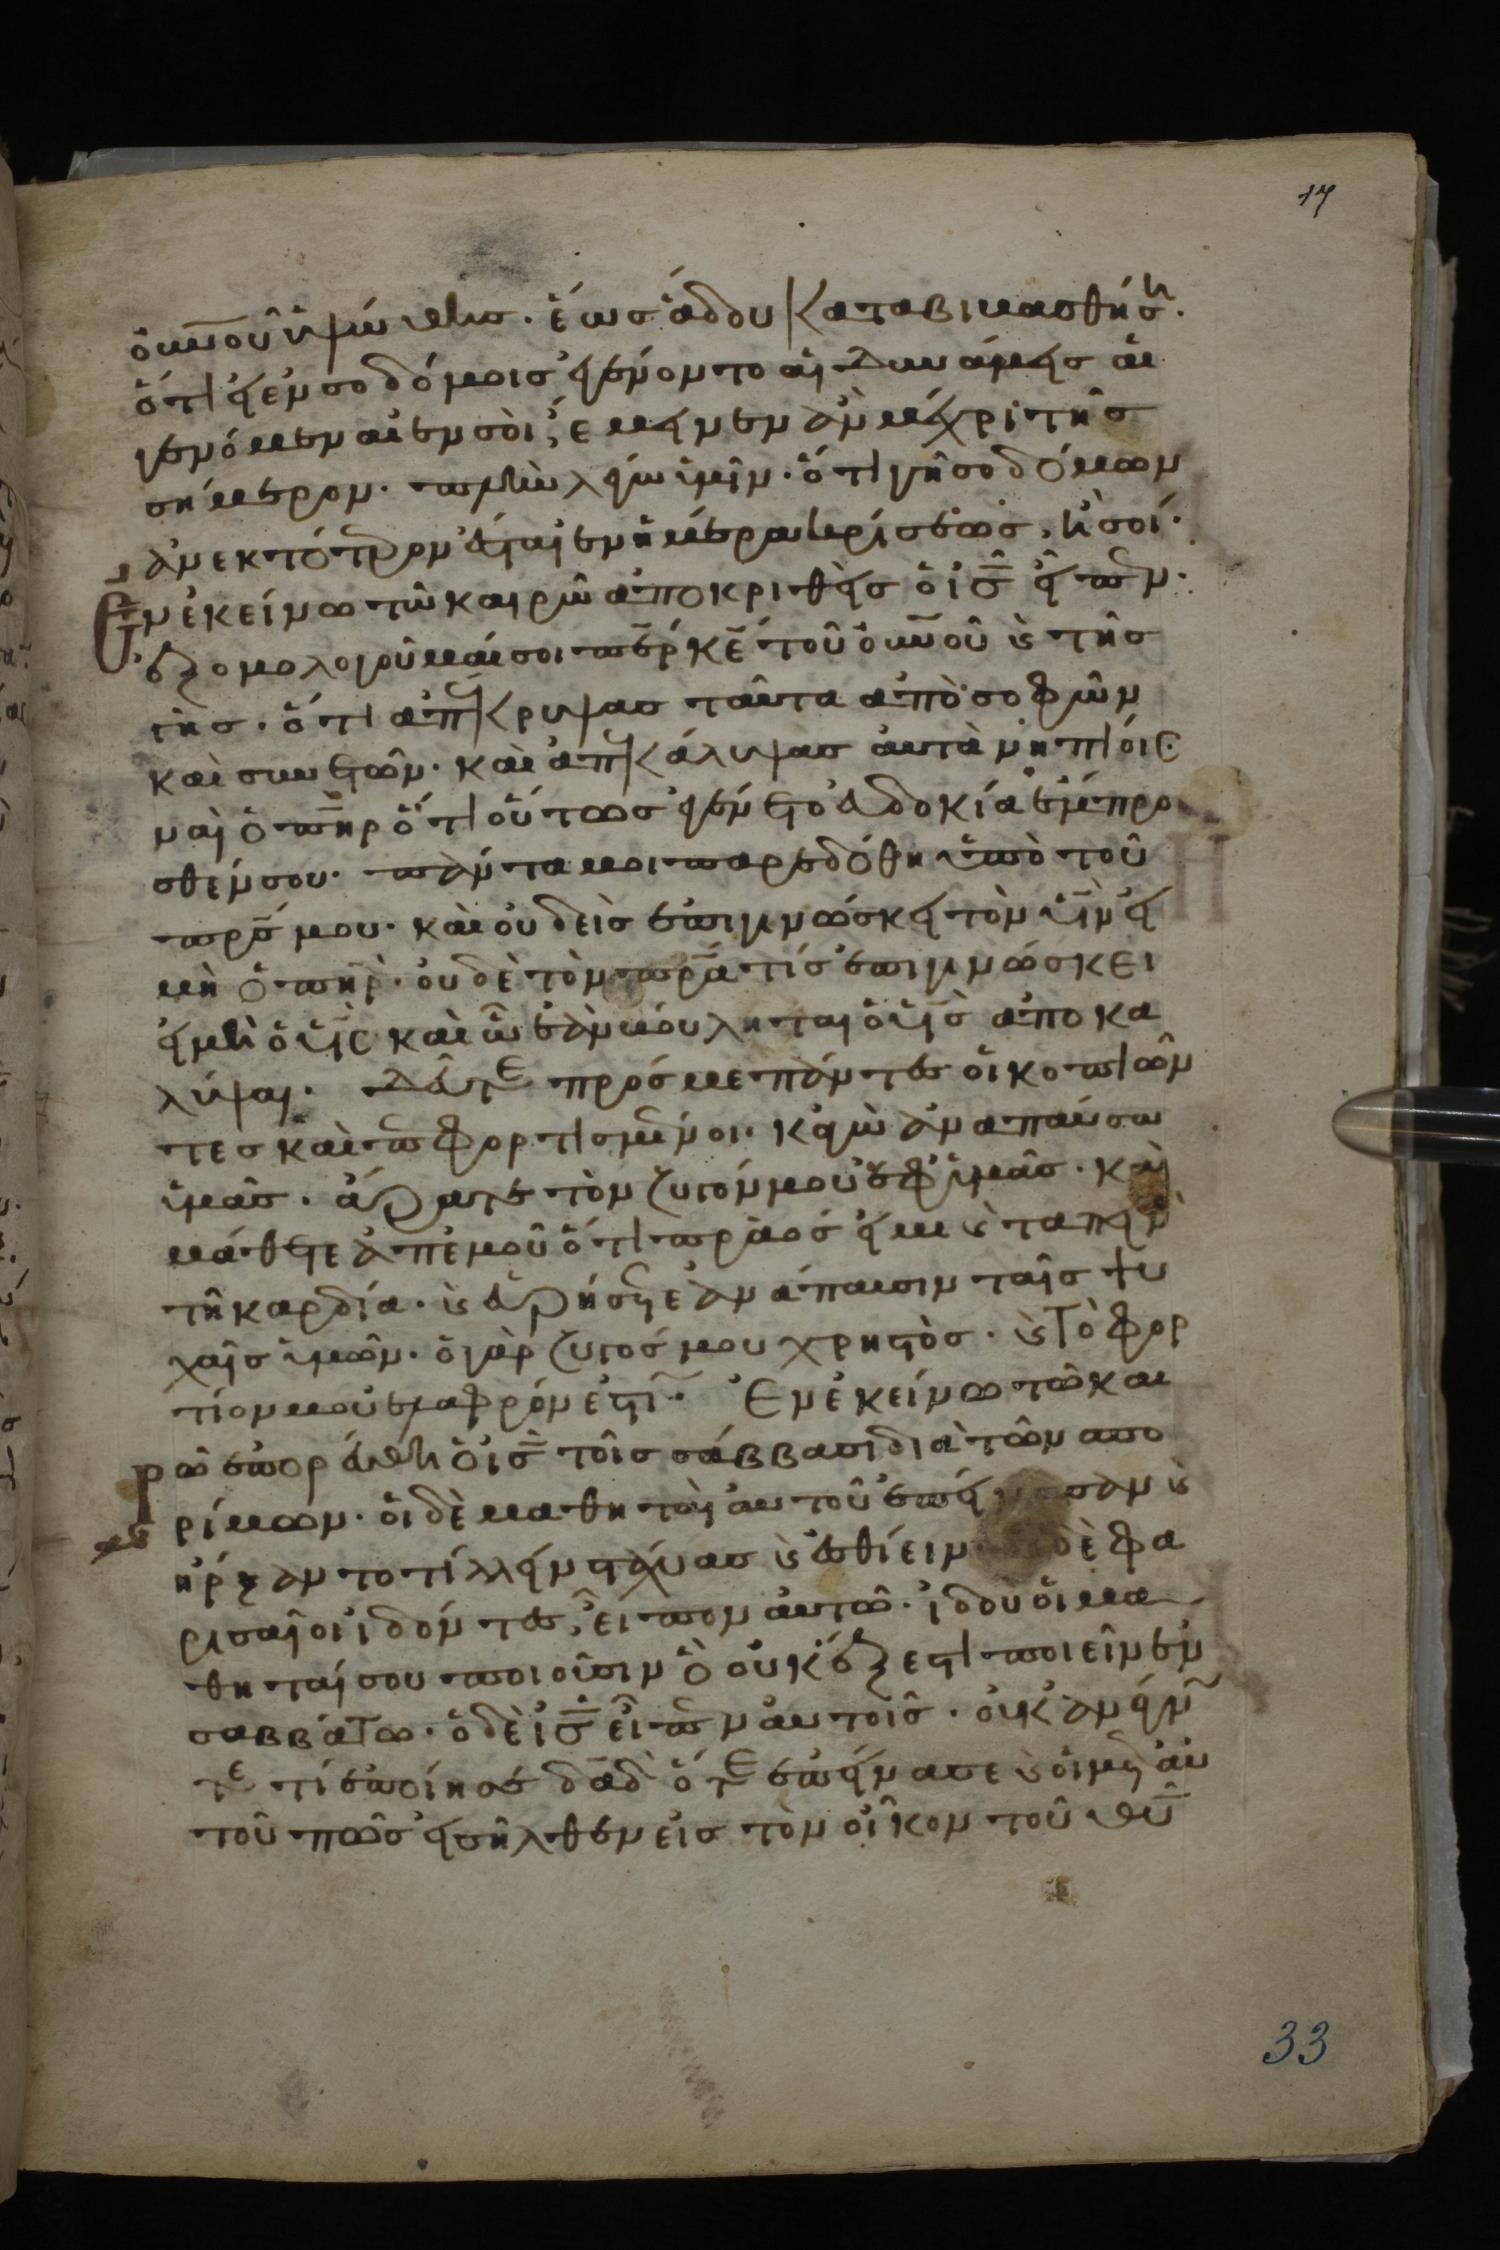 17
οὐνοῦ ὑψώθης. ἕως ἅδου καταβιβασθήση.
ὅτι εἰ ἐν σοδόμοις ἐγένοντο αἱ δυνάμεις αἱ
γενόμεναι ἐν σοὶ, ἔμειναν ἂν μέχρι τῆς
σήμερον. πλὴν λέγω ὑμῖν. ὅτι γῆ σοδόμων
ἀνεκτότερον ἔσται ἐν ἡμέρα κρίσεως, ἢ σοί.
Ἐν ἐκείνω τῶ καιρῶ ἀποκριθεὶς ὁ ις εἶπεν.
ἐξομολογοῦμαί σοι περ κε τοῦ οὐνοῦ καὶ τῆς
γῆς. ὅτι ἀπέκρυψας ταῦτα ἀπὸ σοφῶν
καὶ συνετῶν. καὶ ἀπεκάλυψας αὐτὰ νηπίοις.
ναὶ ὁ πηρ ὅτι οὕτως ἐγένετο εὐδοκία ἔμπρο
σθέν σου. πάντα μοι παρεδόθη ὑπὸ τοῦ
πρς μου. καὶ οὐδεὶς ἐπιγινώσκει τὸν υἱν εἰ
μὴ ὁ πηρ. οὐδὲ τὸν πρα τίς ἐπιγινώσκει
εἰ μὴ ὁ υἱς καὶ ὧ ἐὰν βούληται ὁ υἱς ἀποκα
λύψαι. δεῦτε πρός με πάντες οἱ κοπιῶν
τες καὶ πεφορτισμένοι. κἀγὼ ἀναπαύσω
ὑμᾶς. ἄρατε τὸν ζυγόν μου ἐφ ὑμᾶς. καὶ
μάθετε ἀπ ἐμοῦ ὅτι πρᾶός εἰμι καὶ ταπεινὸ
τῆ καρδία. καὶ εὑρήσετε ἀνάπαυσιν ταῖς ψυ
χαῖς ὑμῶν. ὁ γὰρ ζυγός μου χρηστὸς. καὶ τὸ φορ
τίον μου ἐλαφρόν ἐστι. Ἐν ἐκείνω τῶ και
ρῶ ἐπορεύθη ὁ ις τοῖς σάββασι διὰ τῶν σπο
ρίμων. οἱ δὲ μαθηταὶ αὐτοῦ ἐπείνασαν καὶ
ἤρξαντο τίλλειν στάχυας καὶ ἐσθίειν. οἱ δὲ φα
ρισαῖοι ἰδόντες, εἶπον αὐτῶ. ἰδοὺ οἱ μα
θηταί σου ποιοῦσιν ὃ οὐκ ἔξεστι ποιεῖν ἐν
σαββάτω. ὁ δὲ ις εἶπεν αὐτοῖς. οὐκ ἀνέγνω
τε τί ἐποίησε δαδ ὅτε ἐπείνασε καὶ οἱ μετ αὐ
τοῦ πῶς εἰσῆλθεν εἰς τὸν οἶκον τοῦ θῦ
33